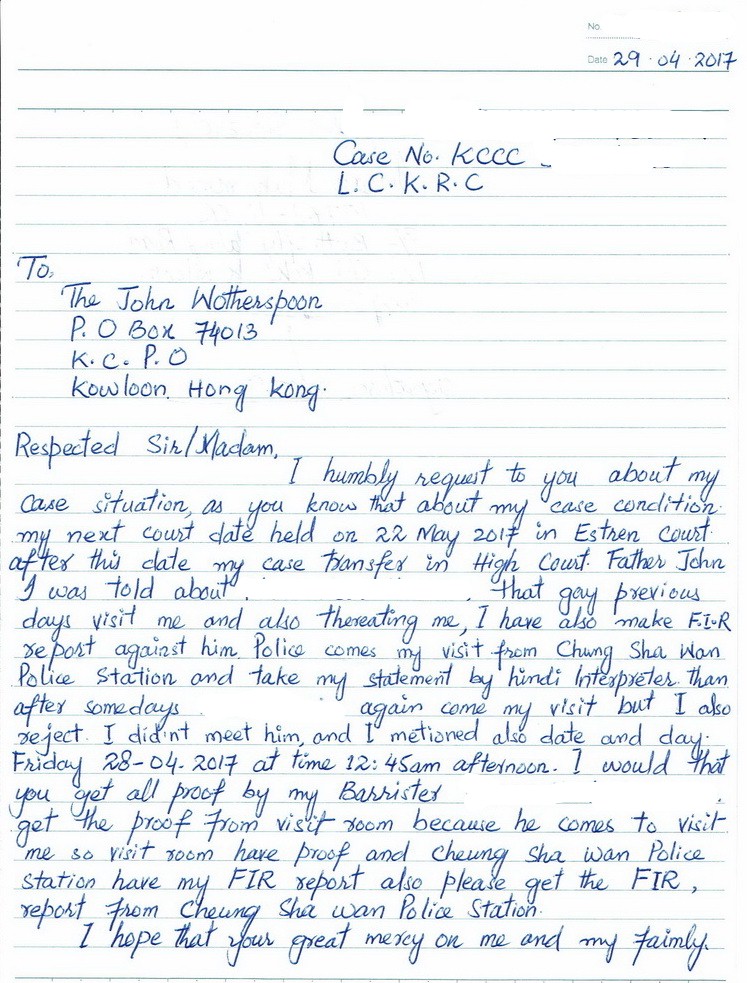 No.
Date 29.04.2017
Case No. KCCC
L.C.K.R.C
To,
The John Wotherspoon
P.O Box 74013
K.C.P.O
Kowloon Hong Kong.
Respected Sir/Madam,
I humbly request to you about my
case situation, as you know that about my case condition.
my next court date held on 22 May 2017 in Estren Court.
after this date my case transfer in High Court. Father John
I was told about that gay previous
days visit me and also thereating me, I have also make F.I.R
report against him Police comes my visit from Chung Sha Wan
Police Station and take my statement by hindi Interpreter. than
after somedays again come my visit but I also
reject. I did'nt meet him, and I metioned also date and day.
Friday 28-04.2017 at time 12:45am afternoon. I would that
you get all proof by my Barrister
get the proof from visit room because he comes to visit
me so visit room have proof and Cheung Sha Wan Police
Station have my FIR report also please get the FIR,
report from Cheung Sha Wan Police Station.
I hope that your great mercy on me and my faimly.